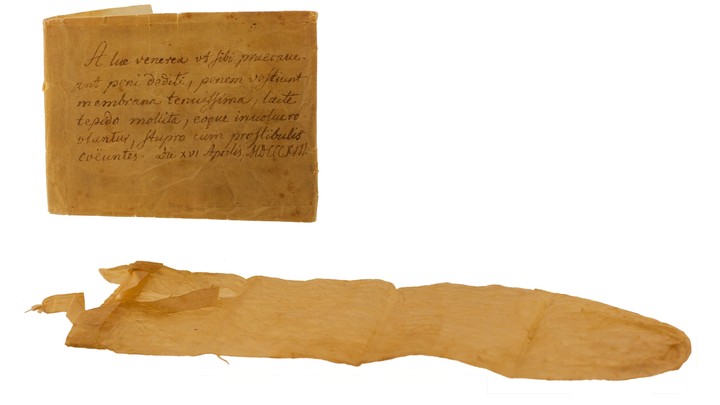 A lue venerea vt sibi praecaue-
ant peni dediti, penem vestiunt
membrana tenuissima, lacte
tepido mollita, eoque inuolucro
vtuntur, stupro cum prostibulis
coëuntes. Die XVI Aprilis